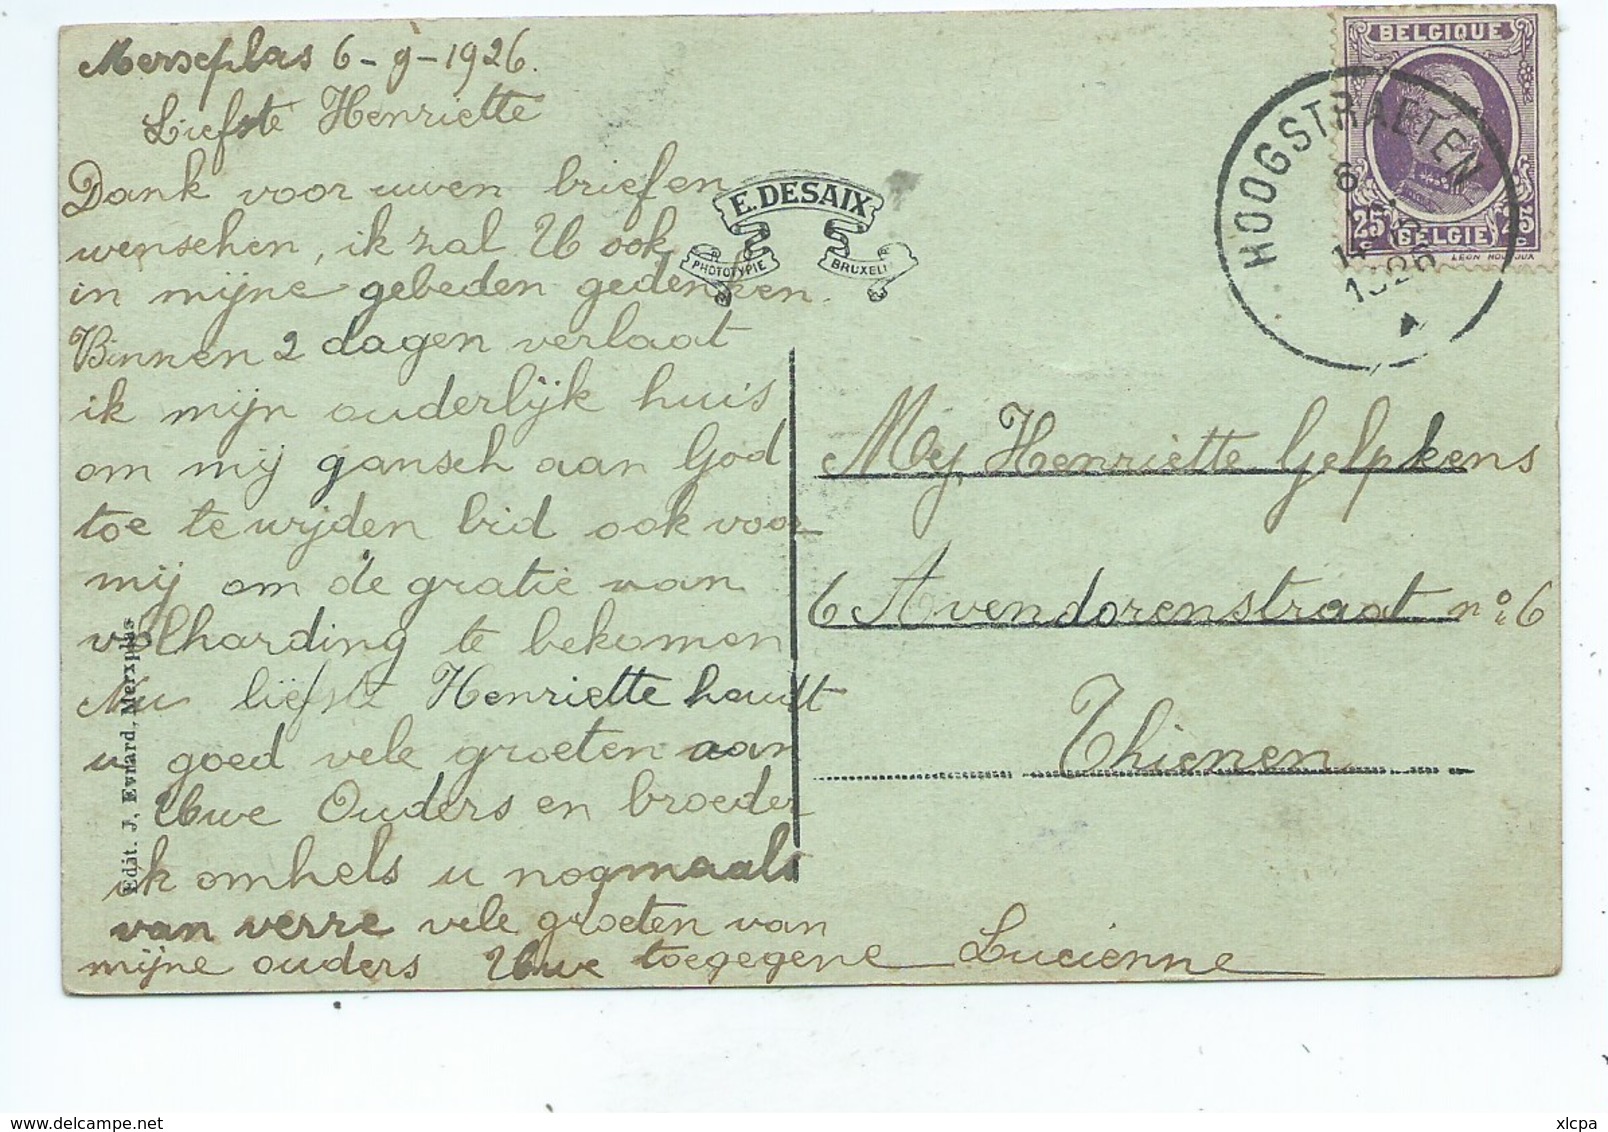 Merxeplas 6-9-1926.
Liefste Henriette
Dank voor uwen brief en
wenschen, ik zal U ook
in mijne gebeden gedenken.
Binnen 2 dagen verlaat
ik mijn ouderlijk huis
om mij gansch aan God
toe te wijden bid ook voor
mij om de gratie van
volharding te bekomen
Nu liefste Henriette houdt
u goed vele groeten aan
Uwe Ouders en broeder
ik omhels u nogmaals
van verre vele groeten van
mijne ouders Uwe toegegene Lucienne
E. DESAIX
PHOTOTYPIE BRUXELL
Edit. J. Evrard, Merxplas
BELGIQUE
25 c 25 c
BELGIE
HOOGSTRAETEN
6
1926
Mej. Henriette Gelpkens
6 Avendorenstraat no 6
Thienen
xlcpa